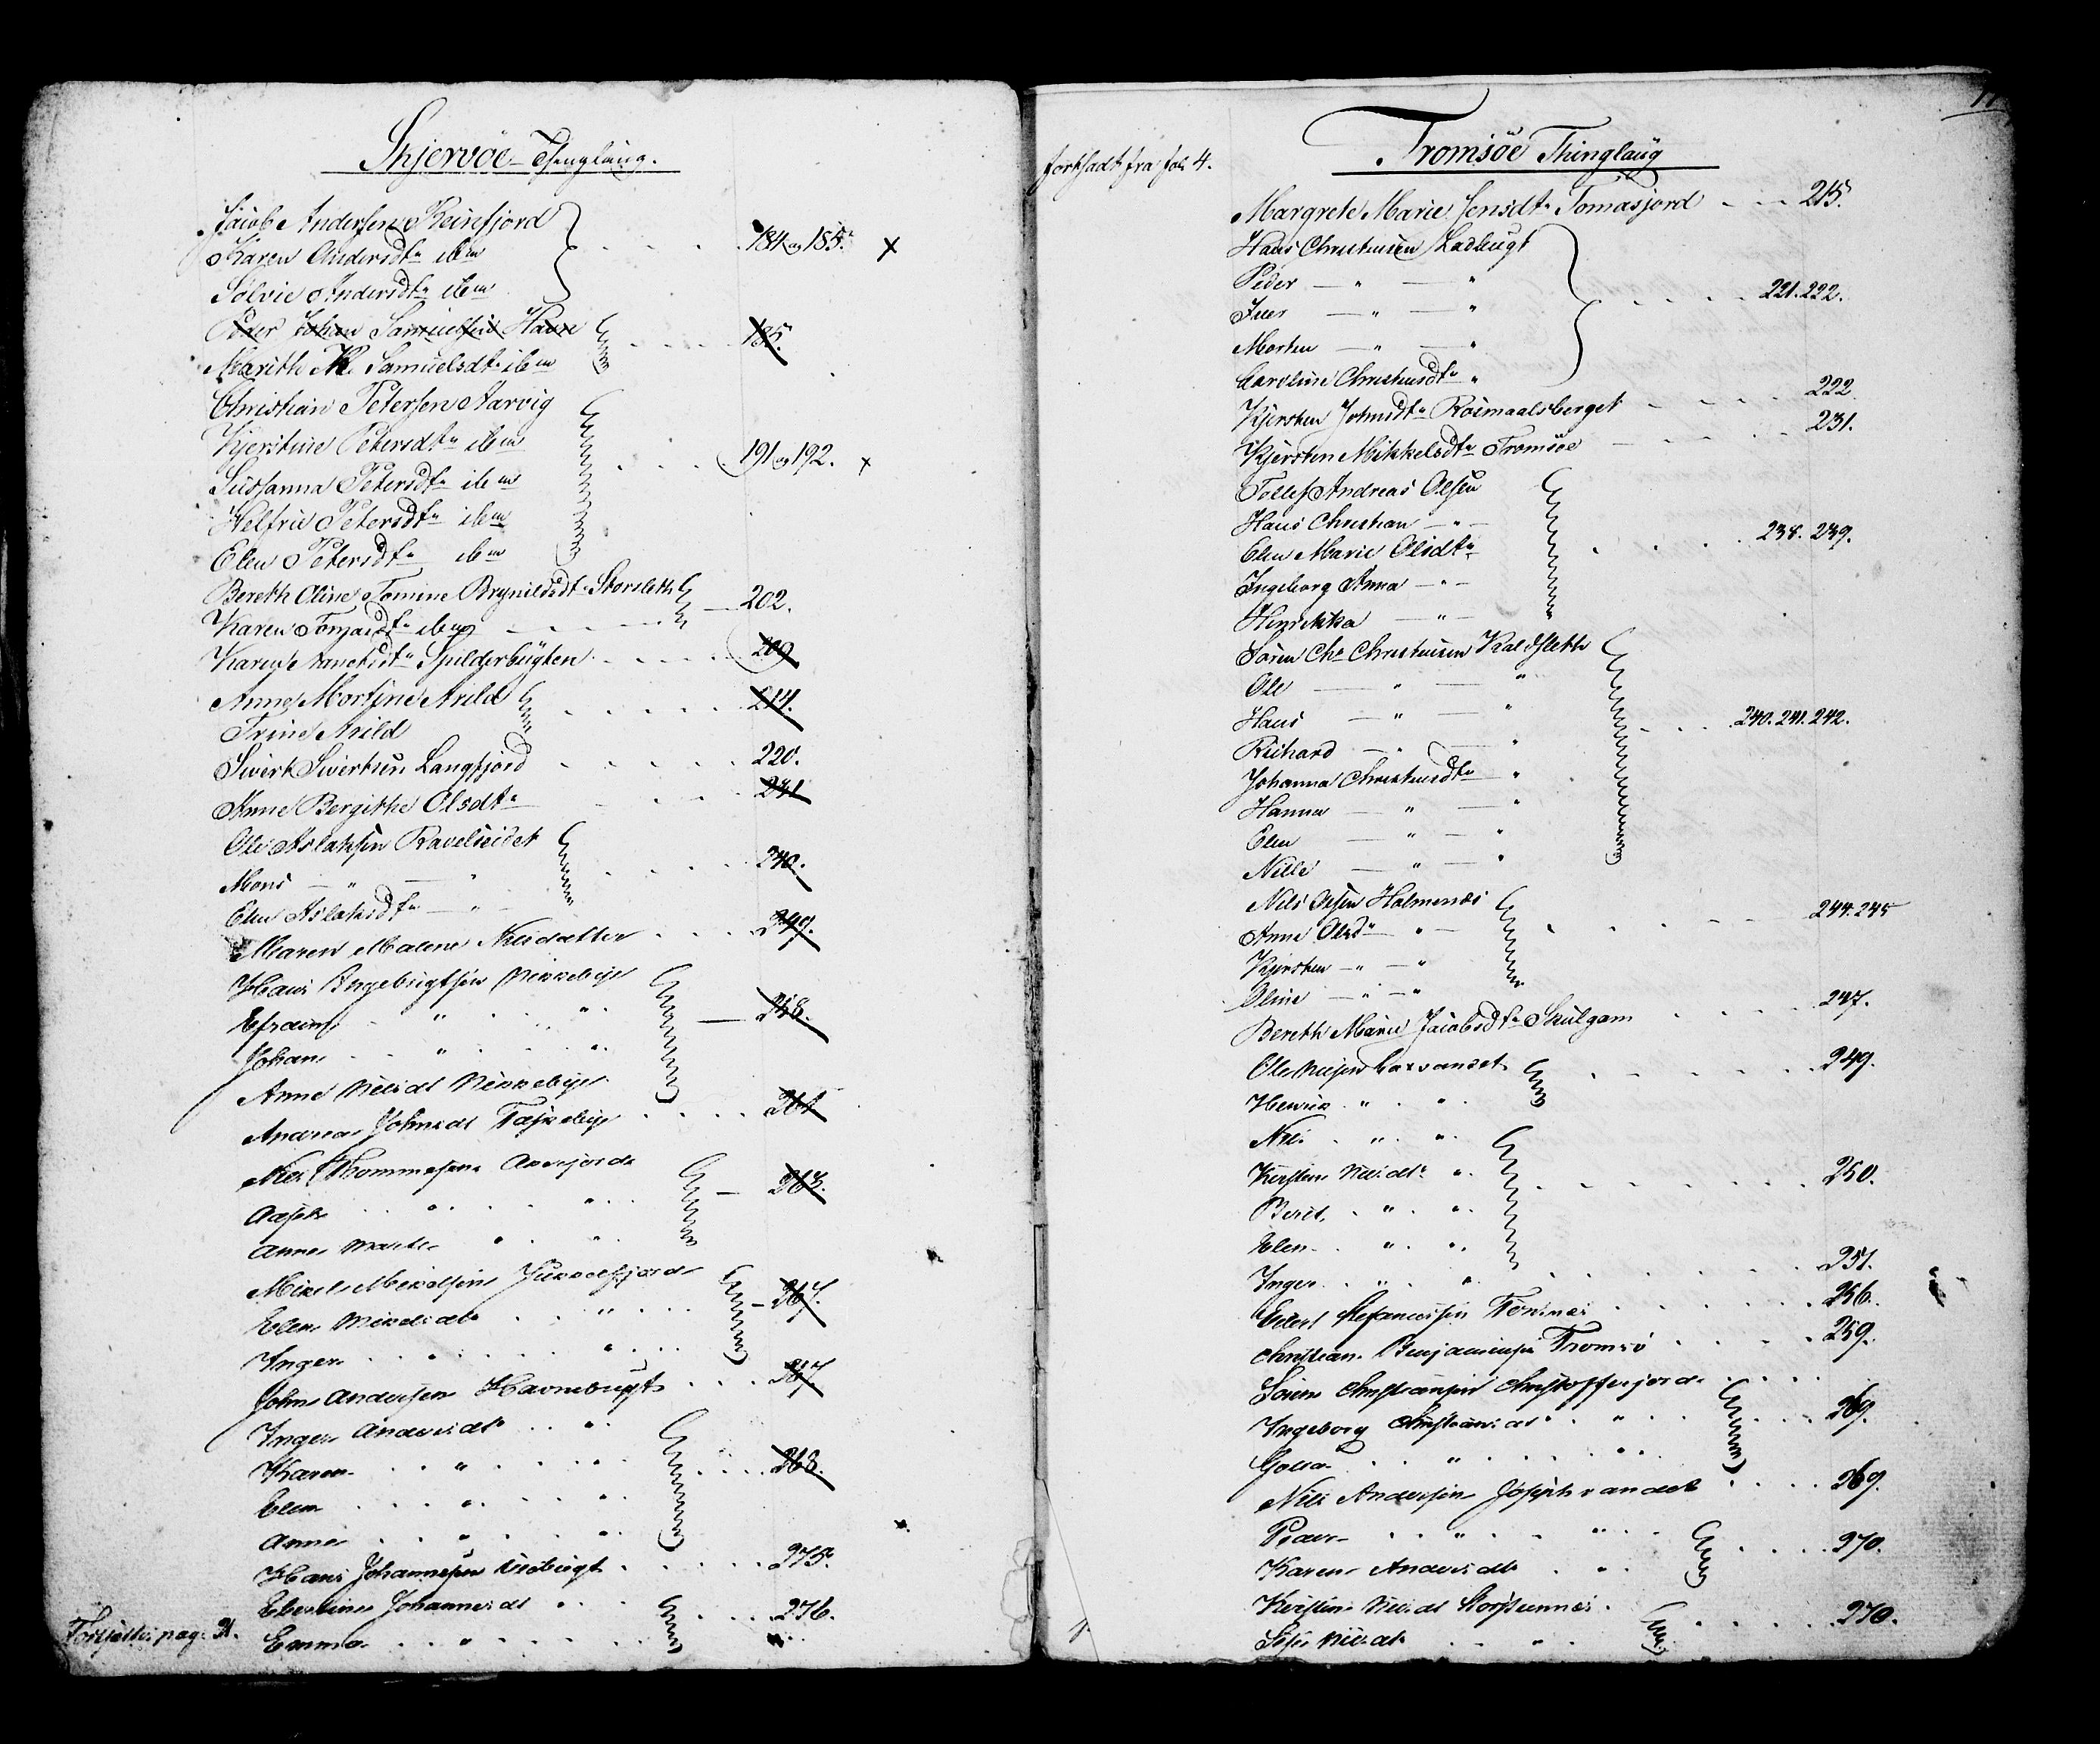 Skjervöe Thinglaug.
Jacob Andersen Reinfjord
Karen Andersdtr ibm 184 og 185. x
Solvie Andersdtr ibm
Peder Johan Samuelsen Havn
Marith M. Samuelsdtr ibm 185.
Christian Petersen Aarvig
Kjerstine Petersdtr ibm
Sussanna Petersdtr ibm 191 og 192. x
Helfrie Petersdtr ibm
Elen Petersdtr ibm
Bereth Oline Tomine Brynildsdtr Storsleth 202.
Karen Tomasdtr ibm
Karen Arnetsdtr Spilderbugten 209
Anne Mortine Arild 214.
Trine Arild
Sivert Sivertsen Langfjord 220.
Anne Bergithe Olsdtr 231
Ole Aslaksen Ravelseidet
Mons — " — " 240.
Elen Aslaksdtr — " -
Maren Malene Nilsdatter 249.
Hans Ingebrigtsen Nikkebye
Efraim " " 258.
Johan " "
Anne Nilsdt Nikkebye
Andrea Johnsdt Taskebye 261
Nils Thommesen Oxefjord
Aaseth " " 263.
Anne Marthe " "
Mikel Mikelsen Jukkelfjord
Elen Mikelsdtr " 267.
Inger " "
John Andersen Havnebugt 267
Inger Andersdtr "
Karen " " 268.
Elen " "
Anne " "
Hans Johannesen Widbugt 275.
Eberline Johannesdt " 276.
Emma " "
Fortsættes pag. 21.
fortsadt fra fol. 4.
Tromsöe Thinglaug
Margrete Marie Jensdtr Tomasjord 215.
Hans Christensen Ladbugt
Peder — " — "
Iver — " — " 221. 222.
Morten — " — "
Caroline Christensdtr "
Kjersten Johnsdtr Roimaalsberget 222
Kjersten Mikkelsdtr Tromsöe 231.
Tollef Andreas Olsen
Hans Christian — " —
Elen Marie Olsdtr 238. 239.
Ingeborg Anna — " —
Henrikka — " —
Sören Chr Christensen Kaldsleth
Ole — " — "
Hans — " — " 240. 241. 242.
Richard — " — "
Johanna Christensdtr "
Hanna — " — "
Elen — " — "
Nille — " — "
Nils Olsen Holmenes 244. 245
Anne Olsdr — " —
Kjersten — " — "
Oline — " — "
Bereth Marie Jacobsdtr Skulgam 247.
Ole Nilsen Laxvandet 249.
Henrik " "
Nils " "
Kirsten Nilsdtr " 250.
Berit " "
Elen " "
Inger " " 251.
Eilert Stefanussen 256.
Christian Benjaminsen Tromsö 259.
Sören Christiansen Christoffersjord
Ingeborg Christiansdt " 269.
Golla " "
Nils Andersen Josephvandet 269.
Peder " "
Karen Andersdtr " 270.
Kirstine Nilsdt Storstennes
Sofie Nilsdtr " 270.